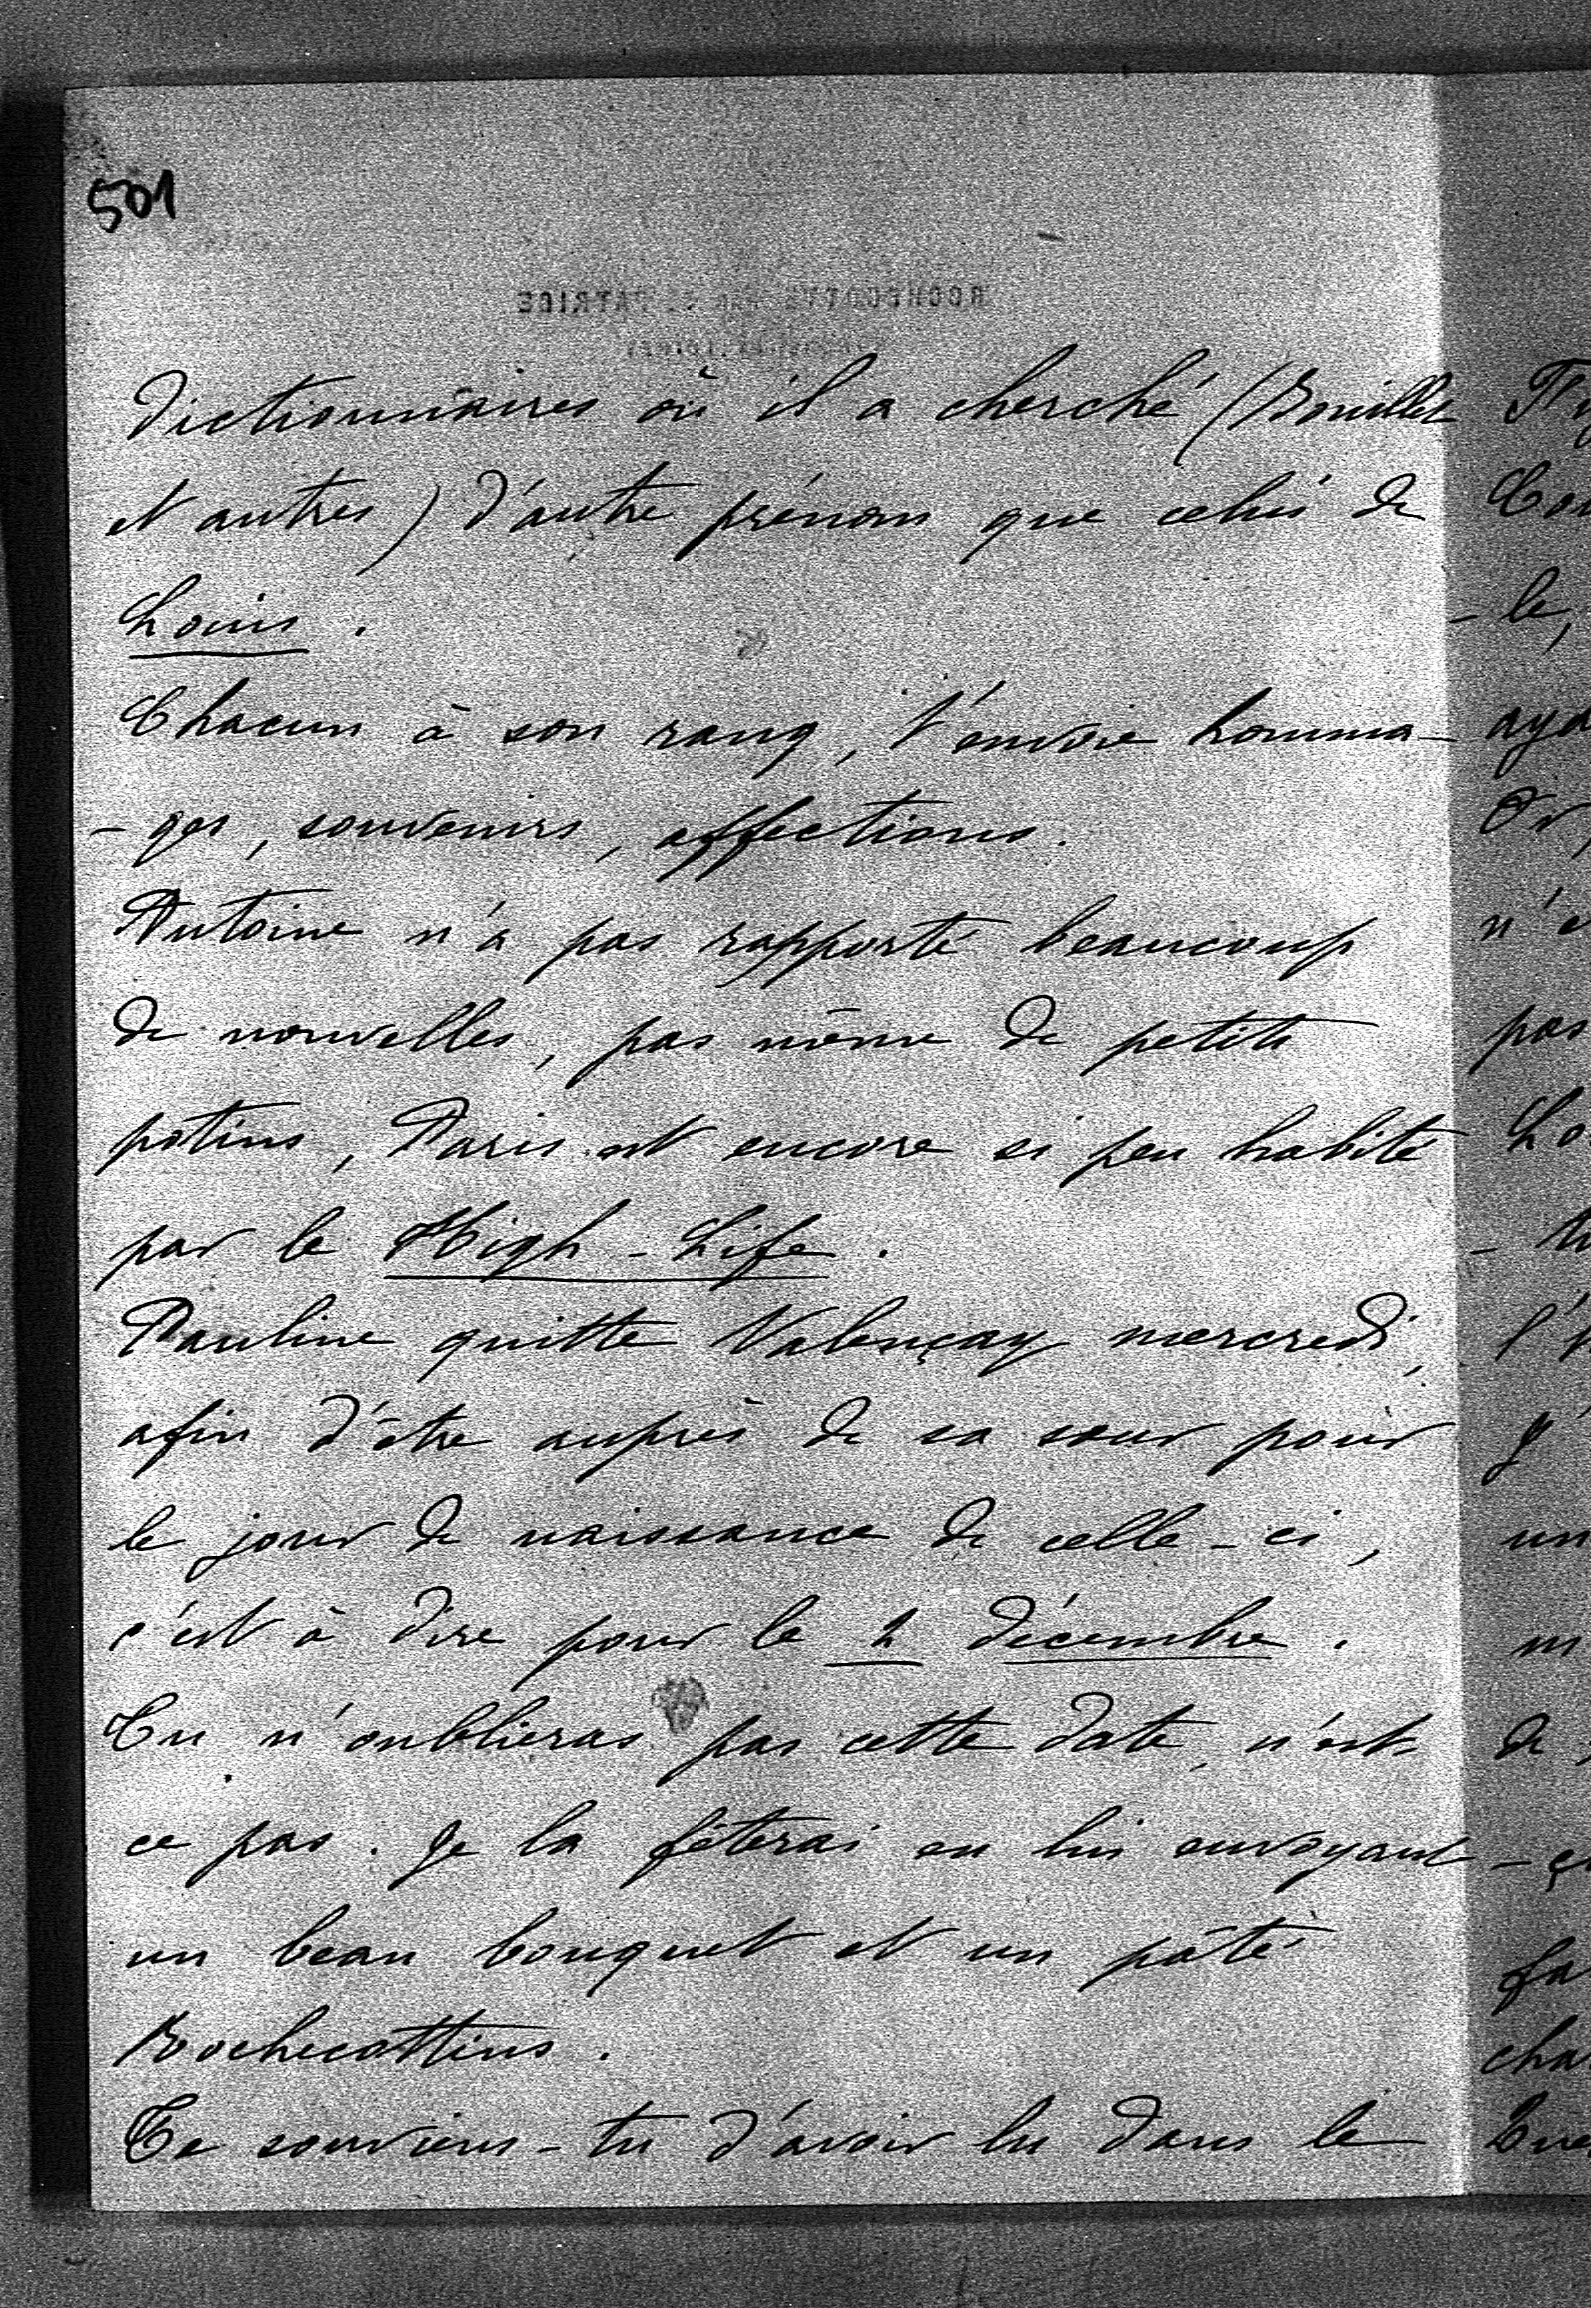 501
dictionnaires où il a cherché (Bouillet
et autres) d'autre prénom que celui de
Louis.
Chacun à son rang, t'envoie homma-
-ges, souvenirs, affections.
Antoine n'a pas rapporté beaucoup
de nouvelles, pas même de petits
potins, Paris est encore si peu habité
par le High-Life.
Pauline quitte Valençay mercredi,
afin d'être auprès de sa sœur pour
le jour de naissance de celle-ci,
c'est à dire pour le 2 décembre.
Tu n'oublieras pas cette date, n'est-
ce pas. Je la fêterai en lui envoyant
un beau bouquet et un pâté
Rochecottins.
Te souviens-tu d'avoir lu dans le